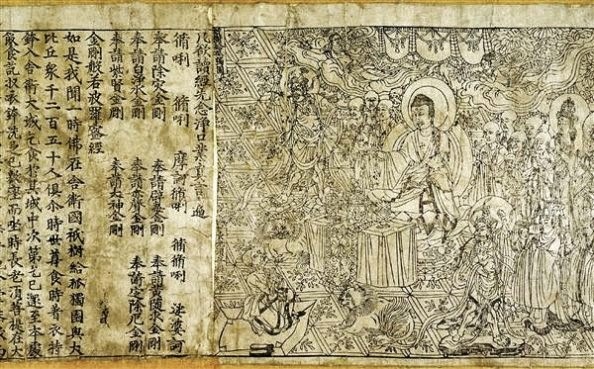 凡欲讀經先念淨口業真言一遍
脩唎 脩唎 摩訶脩唎 脩脩唎 娑婆訶
奉請除灾金剛 奉請辟毒金剛 奉請黄隨求金剛
奉請白淨水金剛 奉請赤聲金剛 奉請定除厄金剛
奉請紫賢金剛 奉請大神金剛
金剛般若波羅蜜經
如是我聞一時佛在舍衛國祇樹給孤獨園與大
比丘衆千二百五十人俱尒時世尊食時着衣持
鉢入舍衛大城乞食於其城中次第乞已還至本處
飯食訖收衣鉢洗足已敷座而坐時長老湏菩提在大